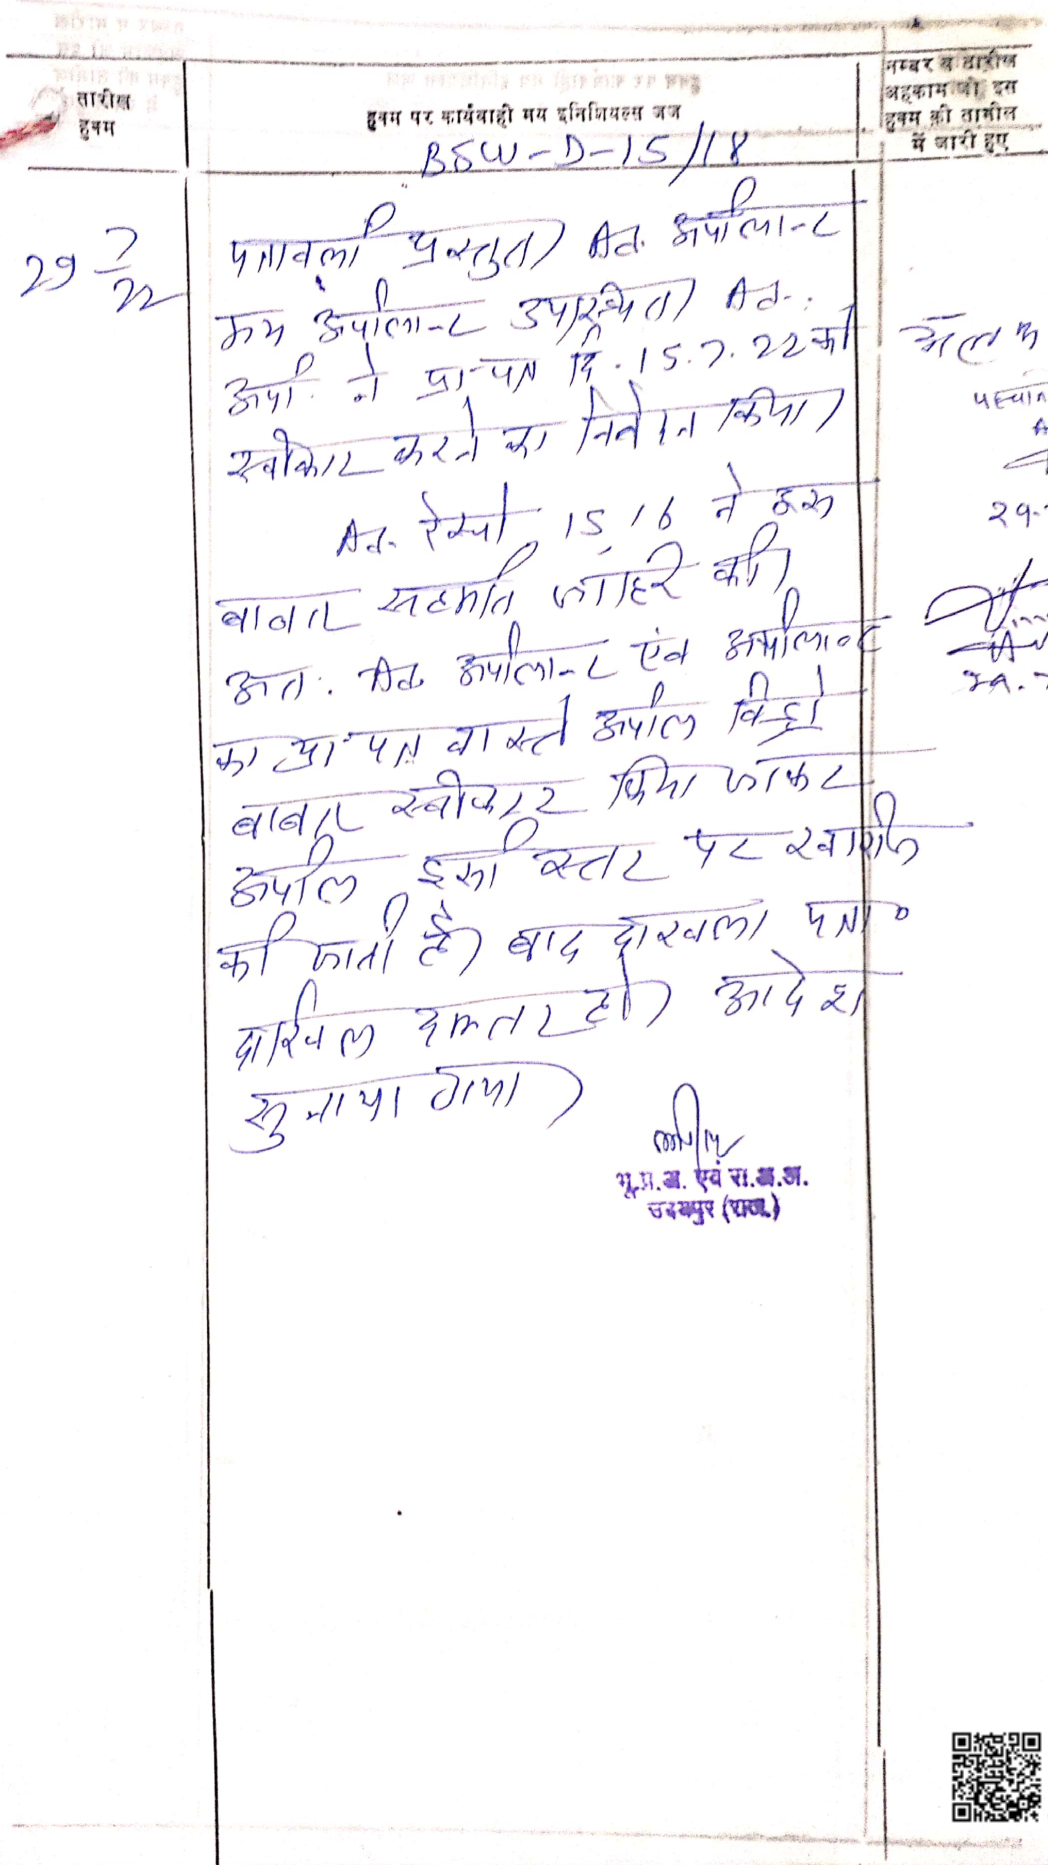 तारीख
हुक्म
हुक्म पर कार्यवाही मय इनिशियल्स जज
नम्बर व तारीख
अहकाम जो इस
हुक्म की तामील
में जारी हुए
BSW-D-15/18
29 7/22
पत्रावली प्रस्तुत। Ad. अपीलान्ट
मय अपीलान्ट उपस्थित। Ad.
अपी. ने प्रा-पत्र दि. 15.7.22 को
स्वीकार करने का निवेदन किया।
Ad. रेस्पो. 15, 16 ने इस
बाबत सहमति जाहिर की।
अतः Ad. अपीलान्ट एंव अपीलान्ट
का प्रा-पत्र वास्ते अपील विड्रो
बाबत स्वीकार किया जाकर
अपील इसी स्तर पर खारीज
की जाती है। बाद दाखला पत्रा०
दाखिल दफ्तर हो। आदेश
सुनाया गया।
भू.प्र.अ. एवं रा.अ.अ.
उदयपुर (राज.)